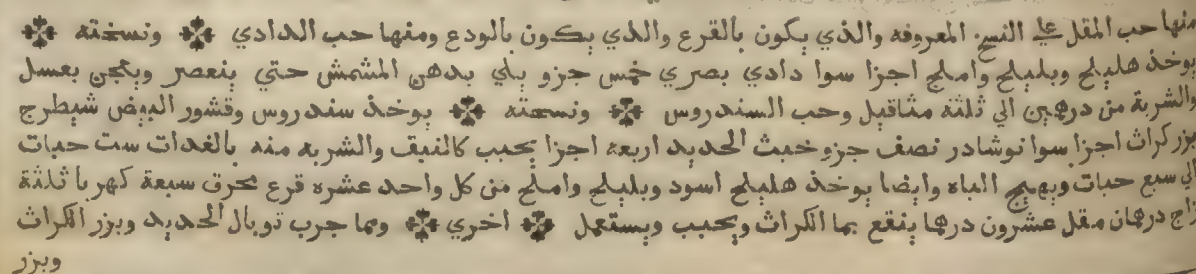 منها حب المقل علي النسخ المعروفه والذي يكون بالقرع والذي يكون بالودع ومنها حب الدادي ونسخته
يوخذ هليلج وبليلج واملج اجزا سوا دادي بصري خمس جزو يلي بدهن المشمش حتي ينعصر ويعجن بعسل
والشربة من درهمين الي ثلثه مثاقيل وحب السندروس ونسحته يوخذ سندروس وقشور البيض شيطرج
بزر كراث اجزا سوا نوشادر نصف جزو خبث الحديد اربعه اجزا يحبب كالنبق والشربه منه بالغدات ست حبات
الي سبع حبات ويهيج الباه وايضا يوخذ هليلج اسود وبليلج واملج من كل واحد عشره قرع محرق سبعة كهربا ثلاثة
زاج درهمان مقل عشرون درهما ينقع بما الكراث ويحبب ويستعمل اخري ومما جرب توبال الحديد وبزر الكراث
وبزر